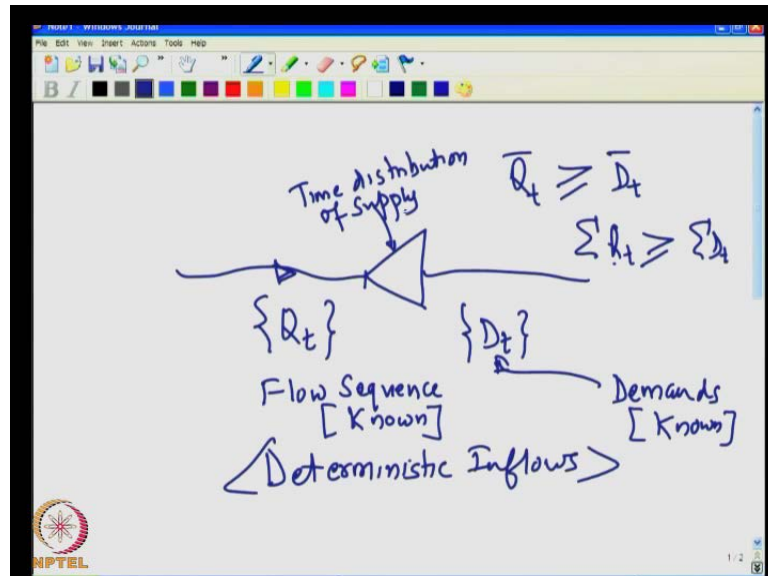 Note1 - Windows Journal
File Edit View Insert Actions Tools Help
B I
Time distribution
of supply
Q̄t ≥ D̄t
Σ Rt ≥ Σ Dt
{Qt}
{Dt}
Flow Sequence
[Known]
Demands
[Known]
<Deterministic Inflows>
NPTEL
1 / 2